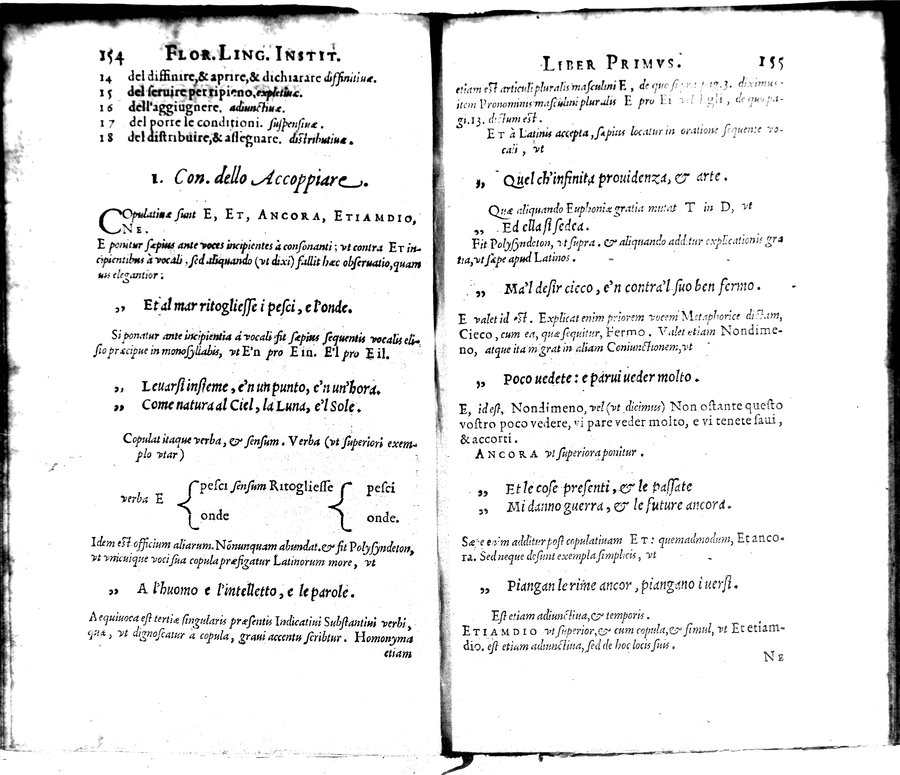 154 FLOR. LING. INSTIT.
14 del diffinire, & aprire, & dichiarare diffinitiuæ.
15 del seruire per ripieno, expletiuæ.
16 dell'aggiugnere. adiunctiuæ.
17 del porre le conditioni. suspensiuæ.
18 del distribuire, & assegnare. distributiuæ.
1. Con. dello Accoppiare.
COpulatiuæ sunt E, ET, ANCORA, ETIAMDIO,
NE.
E ponitur sæpius ante voces incipientes à consonanti; vt contra ET in-
cipientibus à vocali, sed aliquando (vt dixi) fallit hæc obseruatio, quam
uis elegantior:
„ Et al mar ritogliesse i pesci, e l'onde.
Si ponatur ante incipientia á vocali fit sæpius sequentis vocalis eli-
sio præcipue in monosyllabis, vt E'n pro E in. E'l pro E il.
„ Leuarsi insieme, e'n un punto, e'n un'hora.
„ Come natura al Ciel, la Luna, e'l Sole.
Copulat itaque verba, & sensum. Verba (vt superiori exem-
plo vtar)
verba E { pesci sensum Ritogliesse { pesci
onde onde.
Idem est officium aliarum. Nõnunquam abundat. & fit Polysyndeton,
vt vnicuique voci sua copula præfigatur Latinorum more, vt
„ A l'huomo e l'intelletto, e le parole.
Aequiuoca est tertiæ singularis præsentis Indicatiui Substantiui verbi,
quæ, vt dignoscatur a copula, graui accentu scribtur. Homonyma
etiam
LIBER PRIMVS. 155
etiam est articuli pluralis masculini E, de quo supra pag. 3. diximus.
item Pronominis masculini pluralis E pro Ei vel Egli, de quo pa-
gi. 13. dictum est.
ET à Latinis accepta, sæpius locatur in oratione sequente vo-
cali, vt
„ Quel ch'infinita prouidenza, & arte.
Quæ aliquando Euphoniæ gratia mutat T in D, vt
„ Ed ella si sedea.
Fit Polysyndeton, vt supra. & aliquando additur explicationis gra
tia, vt sæpe apud Latinos.
„ Ma'l desir cieco, e'n contra'l suo ben fermo.
E valet id est. Explicat enim priorem vocem Metaphorice dictam,
Cieco, cum ea, quæ sequitur, Fermo. Valet etiam Nondime-
no, atque ita migrat in aliam Coniunctionem, vt
„ Poco uedete: e parui ueder molto.
E, id est, Nondimeno, vel (vt dicimus) Non ostante questo
vostro poco vedere, vi pare veder molto, e vi tenete saui,
& accorti.
ANCORA vt superiora ponitur.
„ Et le cose presenti, & le passate
„ Mi danno guerra, & le future ancora.
Sæpe enim additur post copulatiuam ET: quemadmodum, Et anco-
ra. Sed neque desunt exempla simplicis, vt
„ Piangan le rime ancor, piangano i uersi.
Est etiam adiunctiua, & temporis.
ETIAMDIO vt superior, & cum copula, & simul, vt Et etiam-
dio. est etiam adiunctiua, sed de hoc locis suis.
NE